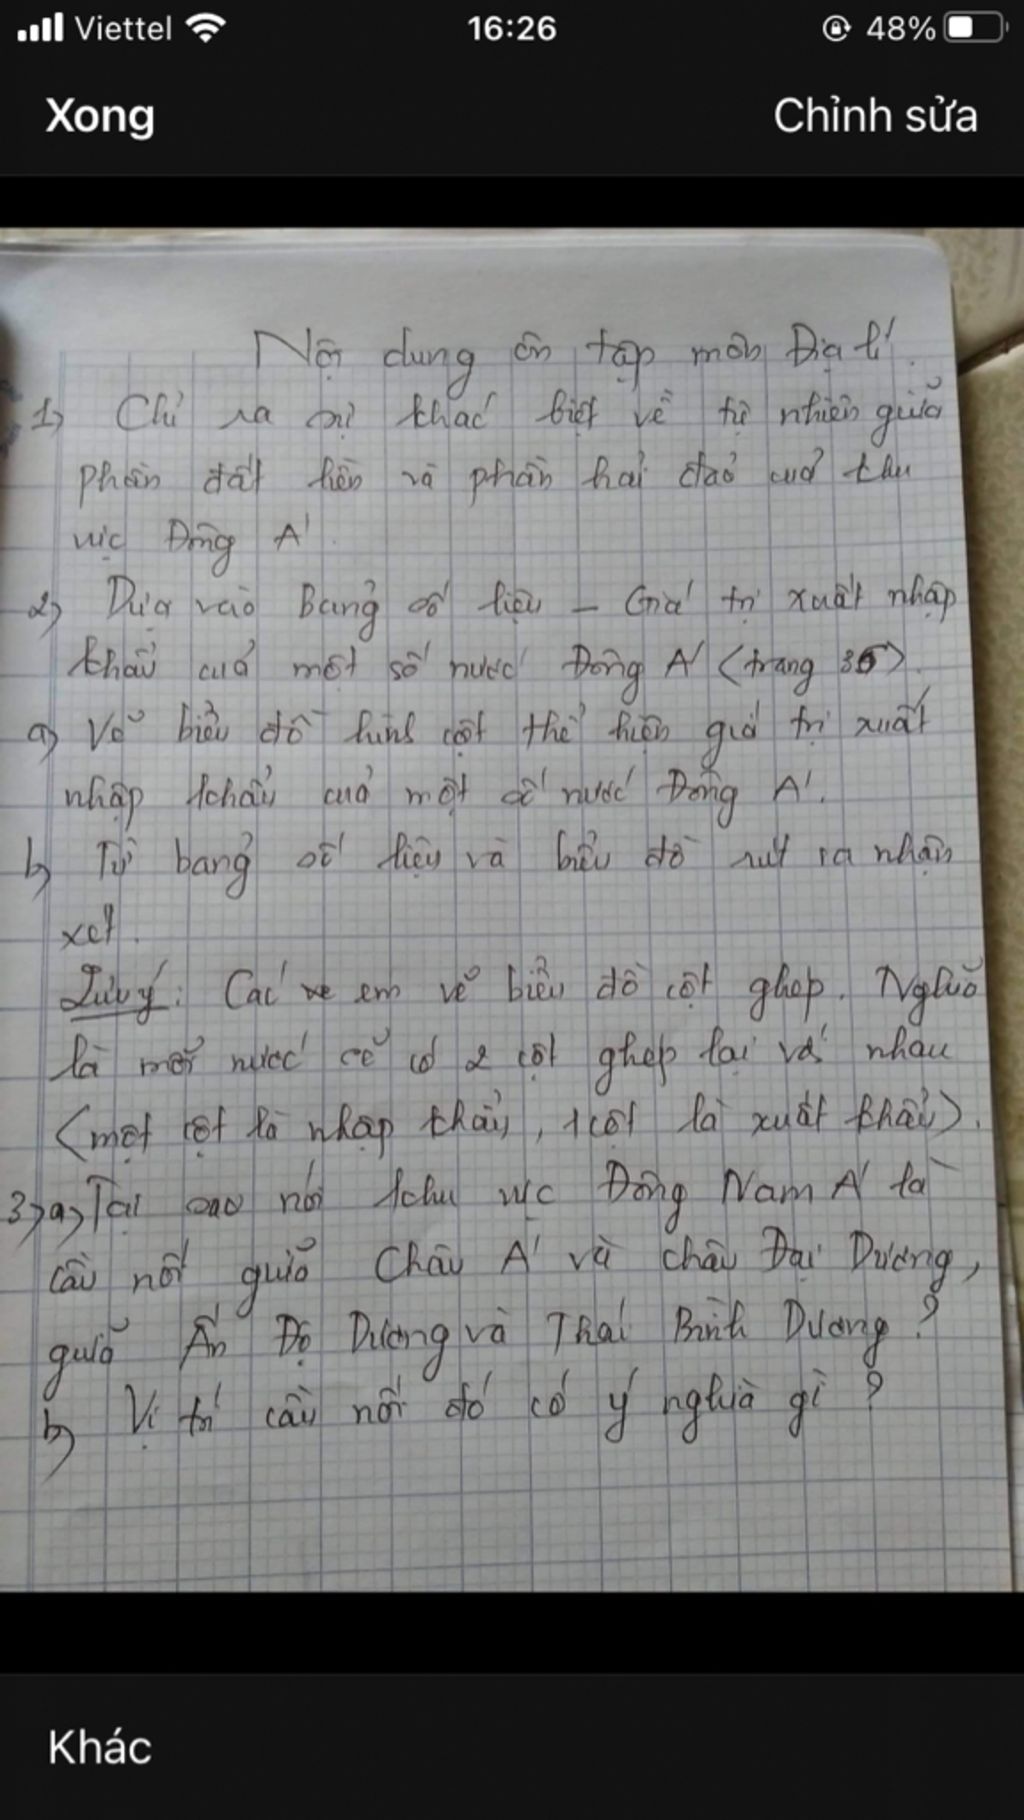 Viettel 16:26 48%
Xong Chỉnh sửa
Nội dung ôn tập môn Địa lí.
1, Chỉ ra sự khác biệt về tự nhiên giữa
phần đất liền và phần hải đảo của khu
vực Đông Á.
2, Dựa vào Bảng số liệu – Giá trị xuất nhập
khẩu của một số nước Đông Á (trang 36).
a, Vẽ biểu đồ hình cột thể hiện giá trị xuất
nhập khẩu của một số nước Đông Á.
b, Từ bảng số liệu và biểu đồ rút ra nhận
xét.
Lưu ý: Các em vẽ biểu đồ cột ghép. Nghĩa
là mỗi nước sẽ có 2 cột ghép lại với nhau
(một cột là nhập khẩu, 1 cột là xuất khẩu).
3, a, Tại sao nói khu vực Đông Nam Á là
cầu nối giữa Châu Á và châu Đại Dương,
giữa Ấn Độ Dương và Thái Bình Dương?
b, Vị trí cầu nối đó có ý nghĩa gì?
Khác